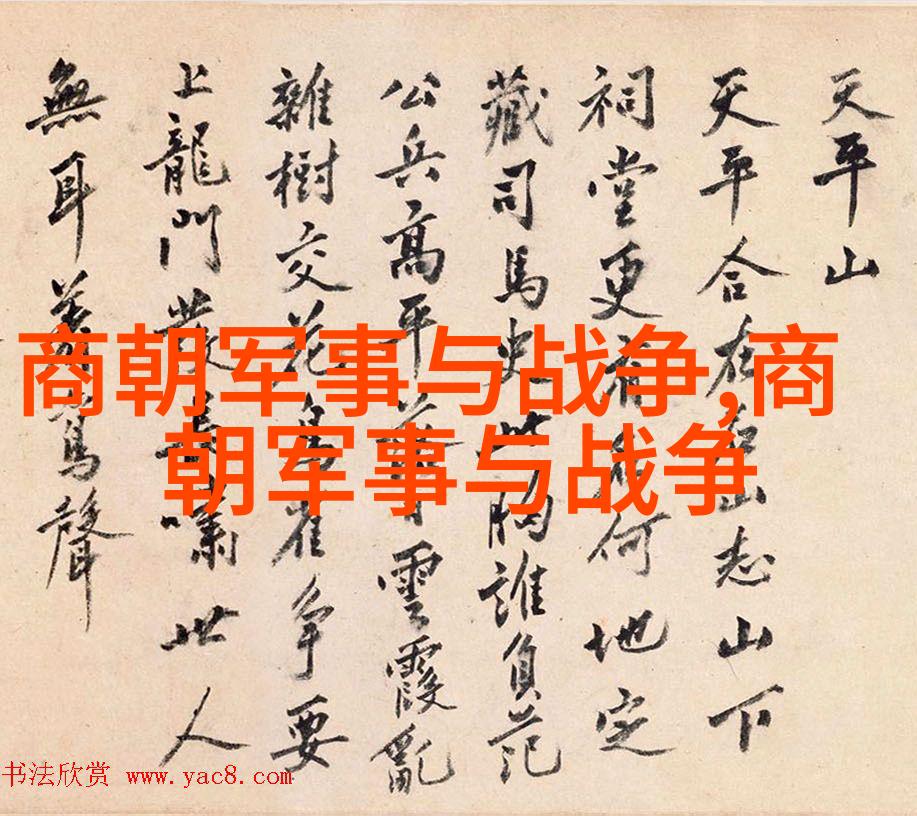 天平山
天平合在山志山下
祠堂更何地定
藏司馬史此胸誰負范
公兵高平雲霞亂
雜樹交花雀争要
上龍門發長嘯世人
無耳聲
商朝军事与战争,商
朝军事与战争
书法欣赏 www.yac8.com